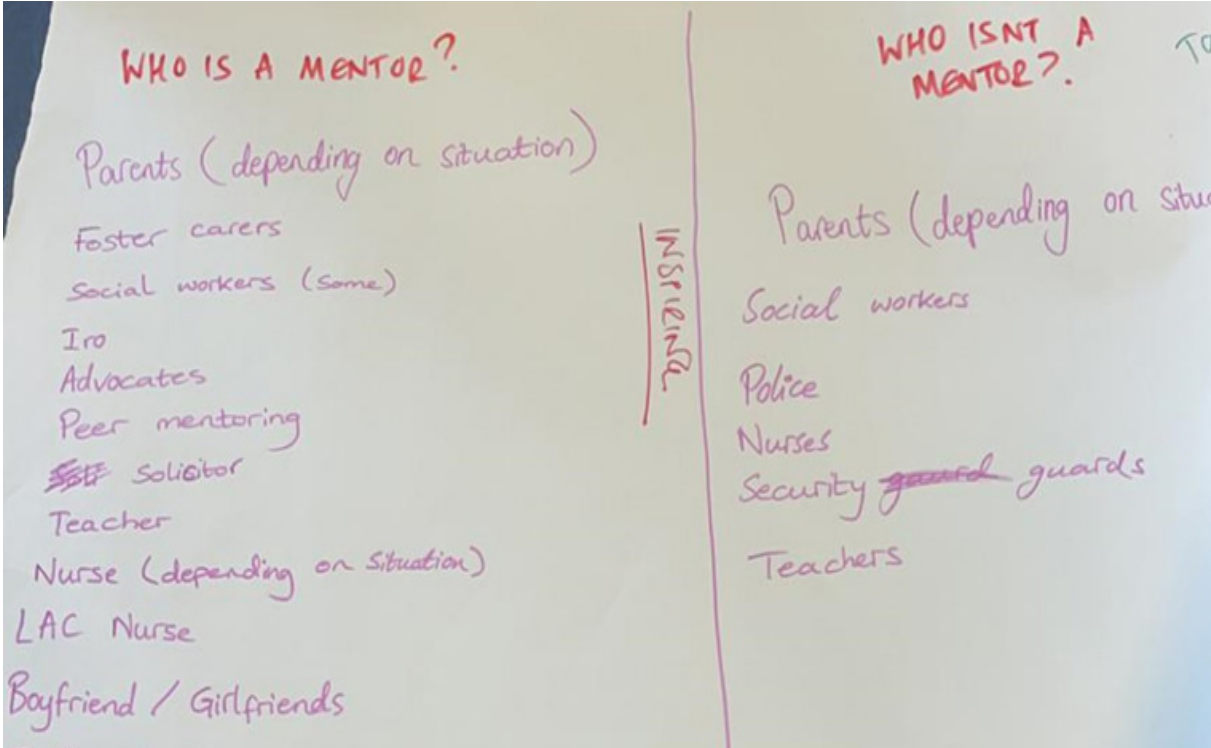 WHO IS A MENTOR?
Parents (depending on situation)
Foster carers
Social workers (some)
Iro
Advocates
Peer mentoring
Solicitor
Teacher
Nurse (depending on situation)
LAC Nurse
Boyfriend / Girlfriends
INSPIRING
WHO ISNT A
MENTOR?.
Parents (depending on situa
Social workers
Police
Nurses
Security guard guards
Teachers
TO